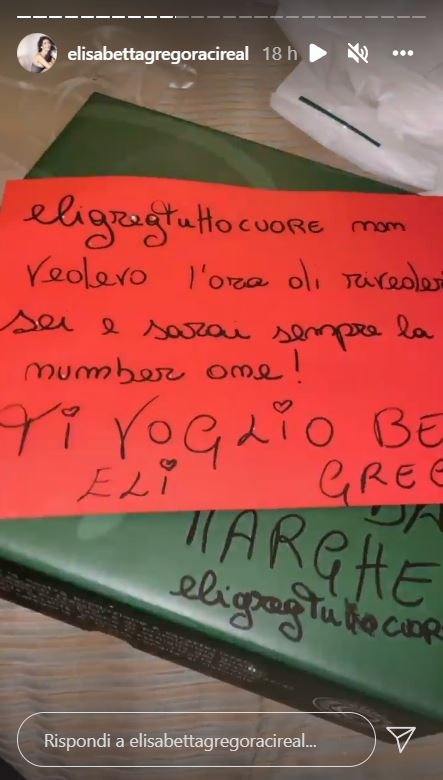 elisabettagregoracireal 18 h
eligregtuttoCUORE non
vedevo l'ora di riveder
sei e sarai sempre la
number one!
TI VOGLIO BE
ELI GREG
DA
MARGHE
eligregtuttocuor
Rispondi a elisabettagregoracireal...